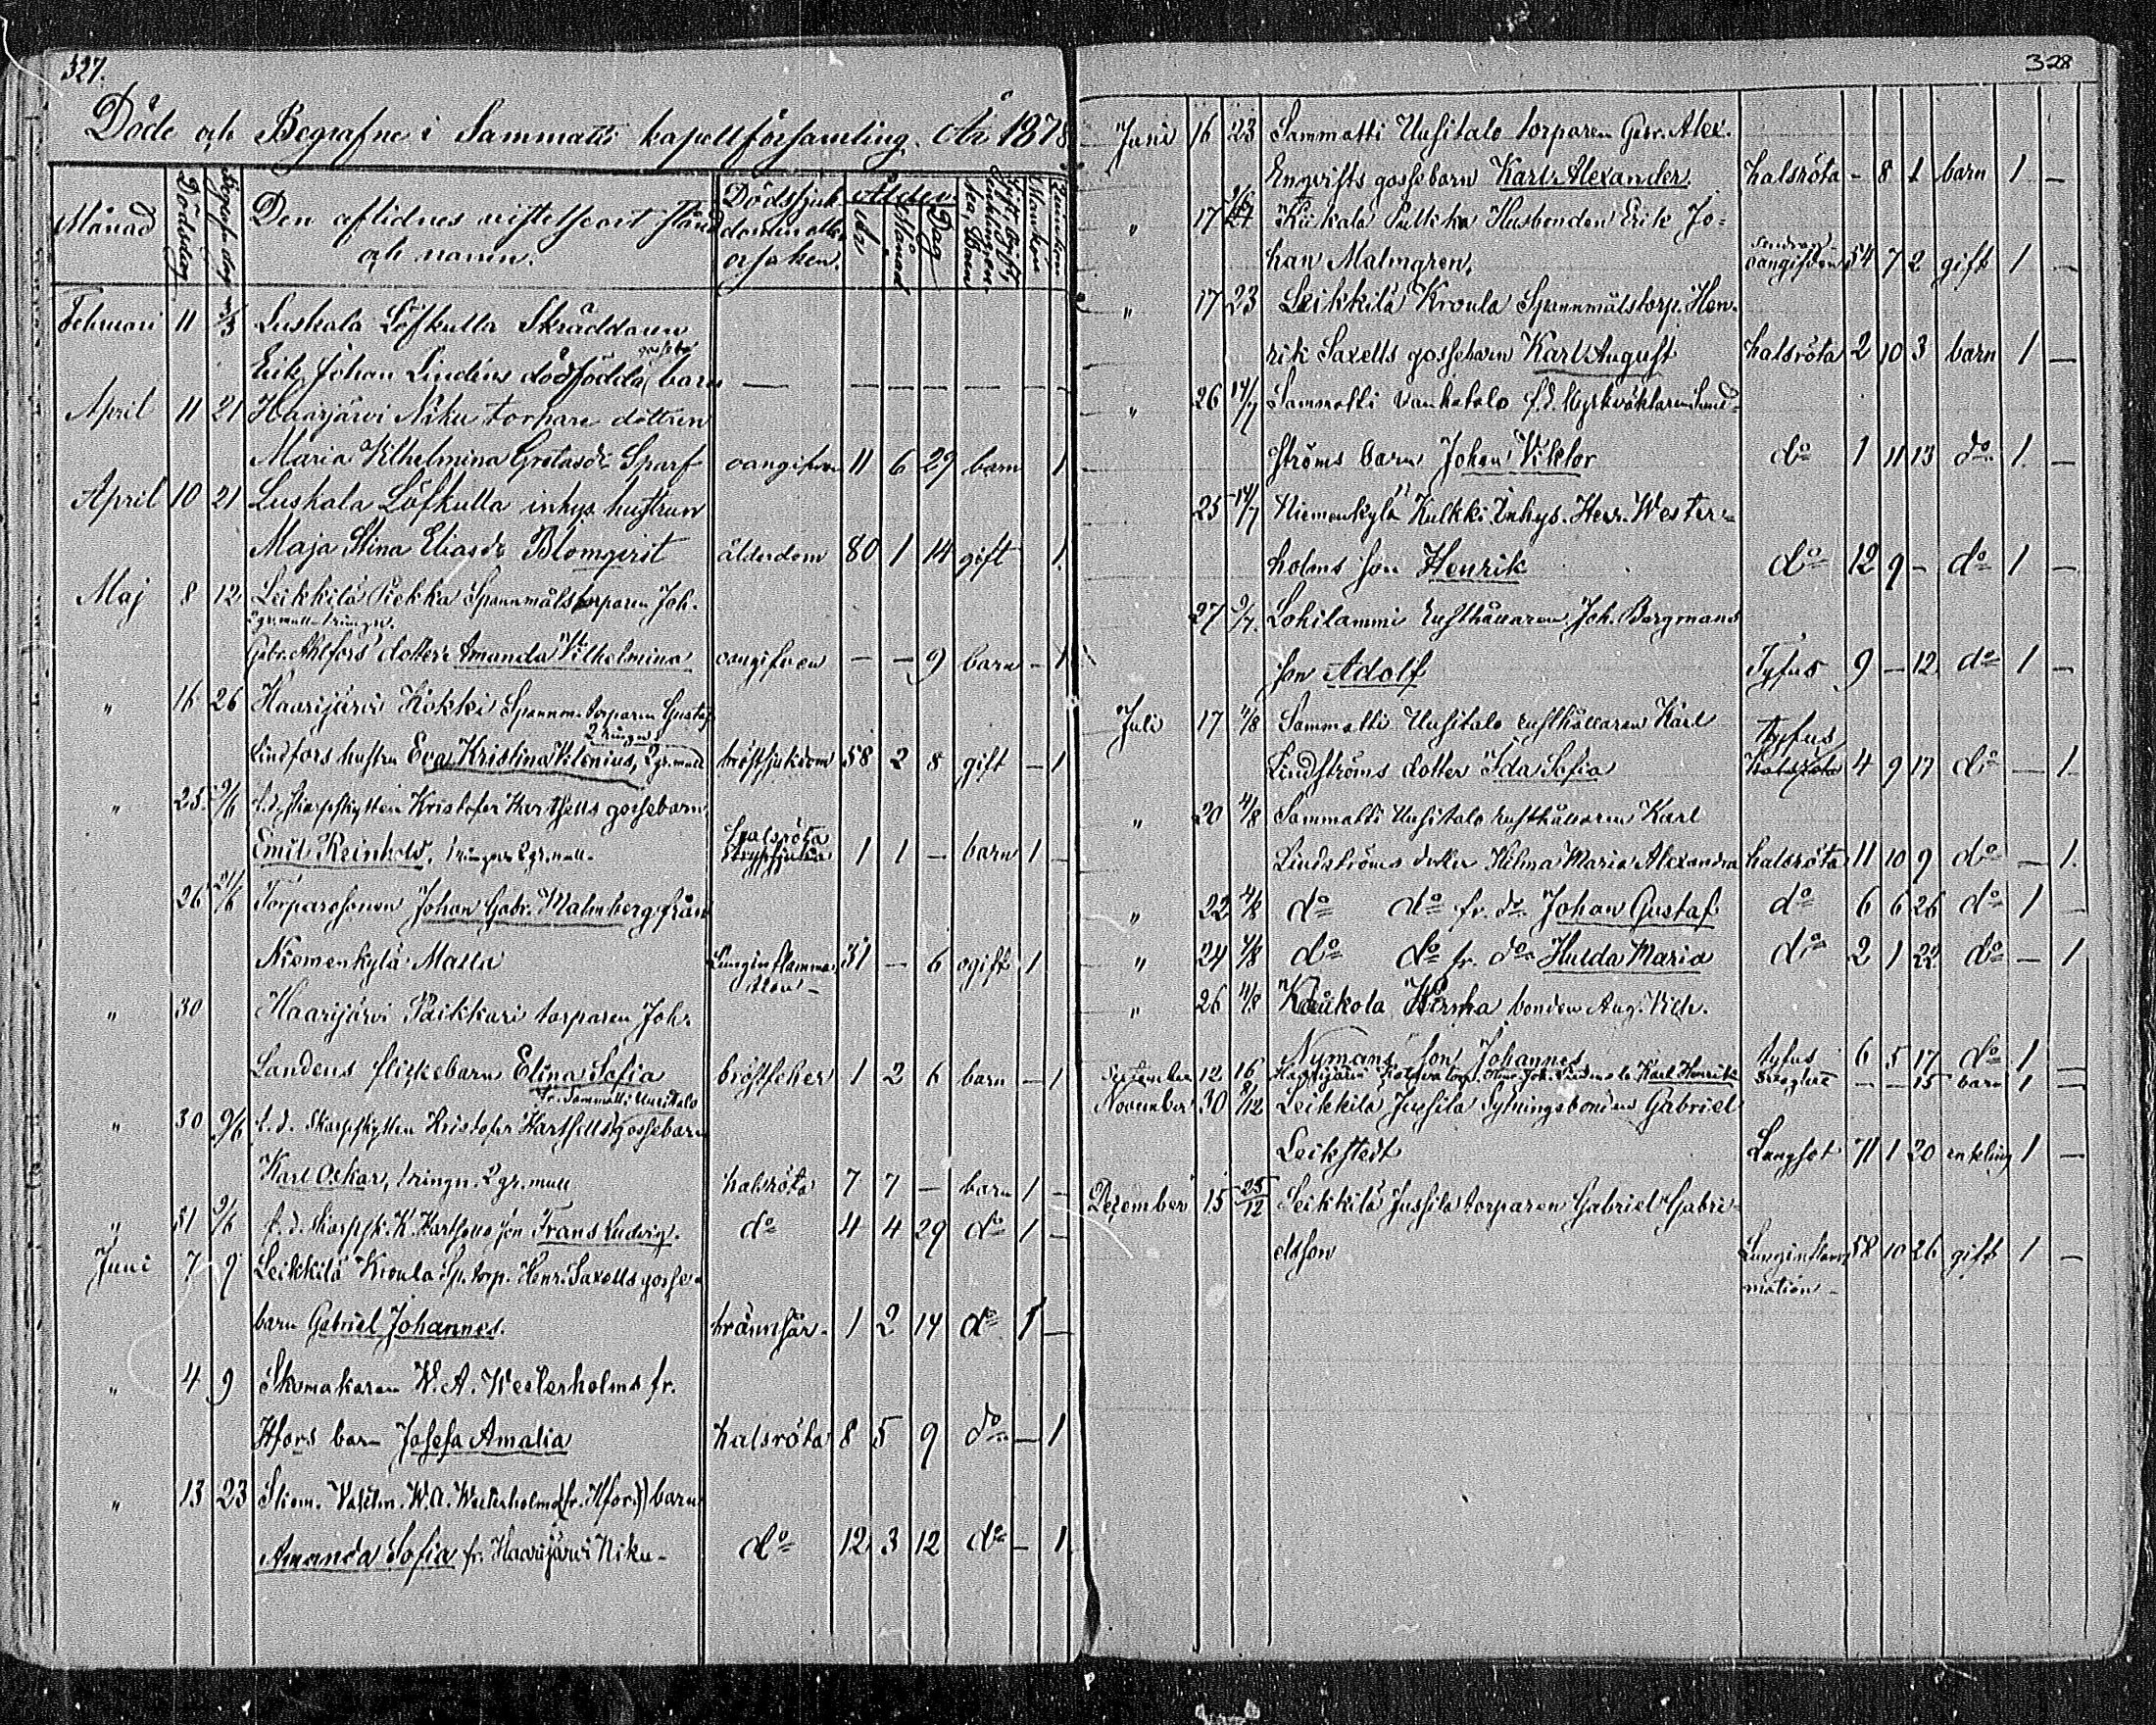 327.
Döde och Begrafne i Sammatti kapellförsamling År 1878
Månad Dödsdag Begrafn.dag Den aflidnes vistelseort stånd och namn. Dödssjukdomen eller orsaken. Ålder År Månad Dag Mankön Qvinnkön
Februari 11 3/3 Luskala Löfkulla Skräddaren
gossebn
Erik Johan Lindéns dödfödda barn — — — — — —
April 11 21 Haarijärvi Niku torpare dottren
Maria Vilhelmina Gustafsdr Sparf oangifven 11 6 29 barn 1
April 10 21 Luskala Löfkulla inhys hustrun
Maja Stina Eliasdr Blomqvist ålderdom 80 1 14 gift 1
Maj 8 12 Leikkilä Piekka Spannmålstorparen Joh.
2 gr. mull 1 ringn.
Gabr. Ahlfors dotter Amanda Vilhelmina oangifven — — 9 barn — 1
" 16 26 Haarijärvi Hökki Spannm. torparen Gustaf
2 ringn.
Lindfors hustru Eva Kristina Vilenius, 2 gr. mull bröstsjukdom 58 2 8 gift — 1
" 25 9/6 f.d. Skarpskytten Kristofer Karthells gossebarn
Emil Reinhold, 1 ringn. 2 gr. mull. halsröta 1 1 — barn 1 —
26 /6 Torparesonen Johan Gabr. Malmberg från
Niemenkylä Malla Lunginflammation 31 — 6 ogift 1
" 30 Haarijärvi Paikkari torparen Joh.
Landens flickebarn Elina Sofia bröstfeber 1 2 6 barn — 1
fr. Sammatti Uusitalo
" 30 9/6 f.d. Skarpskytten Kristofer Karthells gossebarn
Karl Oskar, 1 ringn. 2 gr. mull halsröta 7 7 — barn 1 —
" 31 9/6 f.d. Skarpsk. K. Karthells son Frans Ludvig. do 4 4 29 do 1 —
Juni 7 9 Leikkilä Kroula Sp. torp. Henr. Saxells gosse-
barn Gabriel Johannes. brännsår 1 2 14 do 1 —
" 4 9 Skomakaren W. A. Westerholms fr.
Hfors barn Josefa Amalia halsröta 8 5 9 do — 1
" 13 23 Skom. W.A. Westerholms (fr. Hfors) barn
Amanda Sofia fr. Haarijärvi Niku- do 12 3 12 do — 1
328
Juni 16 23 Sammatti Uusitalo torparen Gabr. Alex.
Engvists gossebarn Karl Alexander halsröta — 8 1 barn 1 —
" 17 Kiikala Pullikka Husbonden Erik Jo-
han Malmgren, oangifven 54 7 2 gift 1 —
" 17 23 Leikkilä Kroula Spannmålstorp. Hen-
rik Saxells gossebarn Karl August halsröta 2 10 3 barn 1 —
" 26 14/7 Sammatti Vanhatalo f.d. Kyrkväktaren Lind-
ströms barn Johan Viktor do 1 11 13 do 1. —
25 14/7 Niemenkylä Kulkki Inhys. Henr. Wester-
holms son Henrik do 12 9 — do 1 —
27 9/7. Lohilammi Lusthållaren Joh. Bergmans
son Adolf Tyfus 9 — 12 do 1 —
Juli 17 4/8 Sammatti Uusitalo Lusthållaren Karl
Lindströms dotter Ida Sofia tyfus halsröta 4 9 17 do — 1.
" 20 4/8 Sammatti Uusitalo Lusthållaren Karl
Lindströms dotter Hilma Maria Alexandra halsröta 11 10 9 do — 1.
" 22 4/8 do do fr. do Johan Gustaf do 6 6 26 do 1 —
" 24 4/8 do do fr. do Hulda Maria do 2 1 22 do — 1
" 26 4/8 Kaukola Wirma bonden Aug. Vilh.
Nymans son Johannes tyfus 6 5 17 do 1 —
September 12 16 Haarijärvi Karl Henrik — — 15 barn 1 —
November 30 /12 Leikkilä Jussila Sytningsbonden Gabriel
Leikstedt Lungsot 71 1 20 enkling 1 —
December 15 25/12 Leikkilä Jussila torparen Gabriel Gabri-
elsson Lunginflammation 58 10 26 gift 1 —